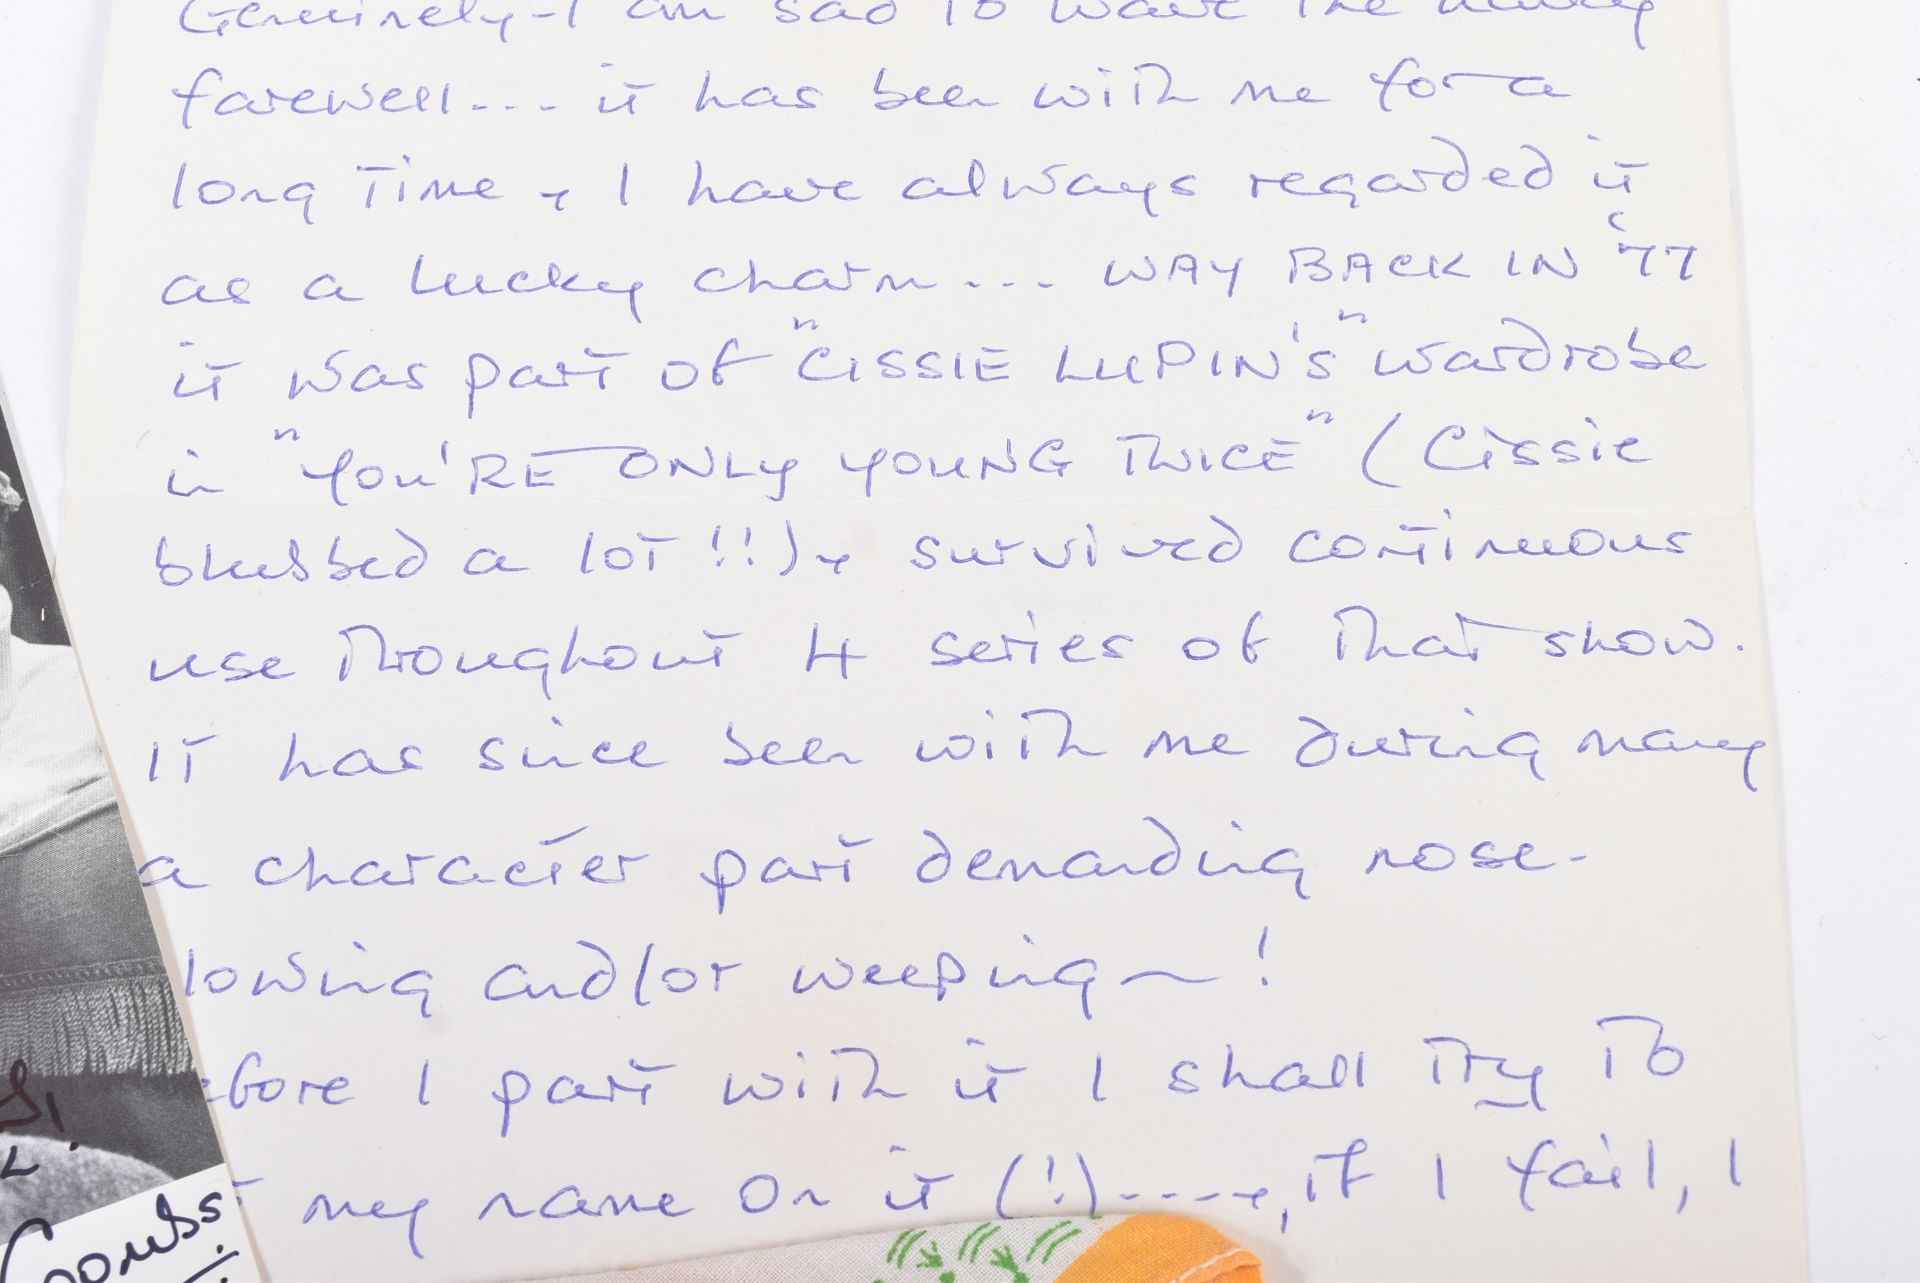 Genuinely - I am sad to wave the hanky
farewell... it has been with me for a
long time + I have always regarded it
as a lucky charm... WAY BACK IN '77
it was part of "CISSIE LUPIN'S" wardrobe
in "YOU'RE ONLY YOUNG TWICE" (Cissie
blubbed a lot!!) + survived continuous
use throughout 4 series of that show.
It has since been with me during many
a character part demanding nose-
lowing and/or weeping ~!
efore I part with it I shall try to
my name on it (!)----+, if I fail, I
Coombs